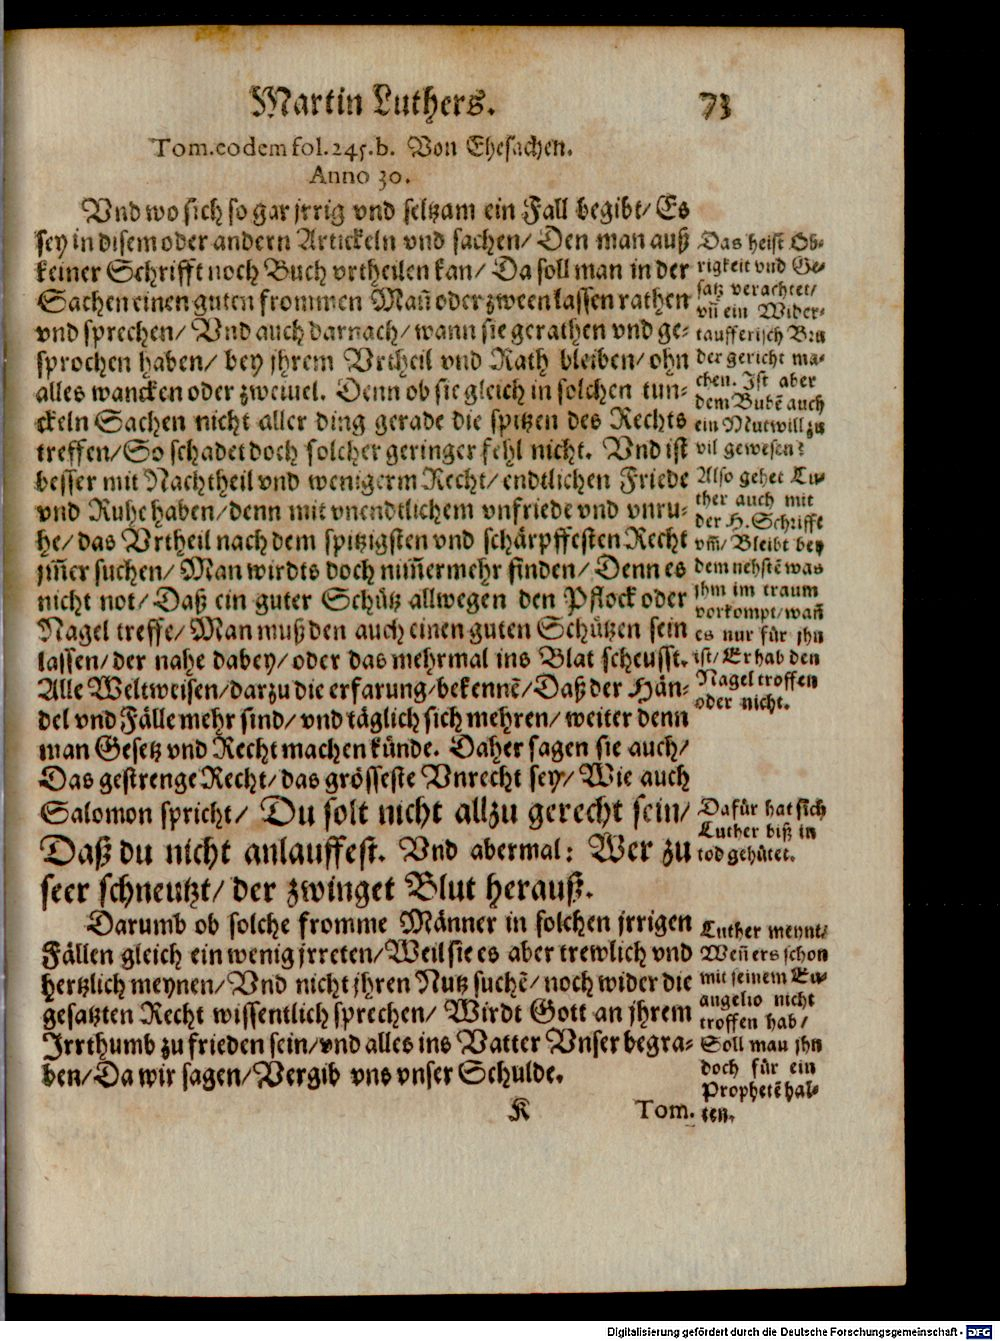 Martin Luthers. 73
Tom. eodem fol. 245. b. Von Ehesachen.
Anno 30.
Vnd wo sich so gar jrrig vnd seltzam ein Fall begibt/ Es
sey in disem oder andern Artickeln vnd sachen/ Den man auß
keiner Schrifft noch Buch vrtheilen kan/ Da soll man in der
Sachen einen guten frommen Mañ oder zween lassen rathen
vnd sprechen/ Vnd auch darnach/ wann sie gerathen vnd ge-
sprochen haben/ bey jhrem Vrtheil vnd Rath bleiben/ ohn
alles wancken oder zweiuel. Denn ob sie gleich in solchen tun-
ckeln Sachen nicht aller ding gerade die spitzen des Rechts
treffen/ So schadet doch solcher geringer fehl nicht. Vnd ist
besser mit Nachtheil vnd wenigerm Recht/ endtlichen Friede
vnd Ruhe haben/ denn mit vnendtlichem vnfriede vnd vnru-
he/ das Vrtheil nach dem spitzigsten vnd schärpffesten Recht
jm̃er suchen/ Man wirdts doch nim̃ermehr finden/ Denn es
nicht not/ Daß ein guter Schütz allwegen den Pflock oder
Nagel treffe/ Man muß den auch einen guten Schützen sein
lassen/ der nahe dabey/ oder das mehrmal ins Blat scheusst.
Alle Weltweisen/ darzu die erfarung/ bekennẽ/ Daß der Hän-
del vnd Fälle mehr sind/ vnd täglich sich mehren/ weiter denn
man Gesetz vnd Recht machen künde. Daher sagen sie auch/
Das gestrenge Recht/ das grösseste Vnrecht sey/ Wie auch
Salomon spricht/ Du solt nicht allzu gerecht sein/
Daß du nicht anlauffest. Vnd abermal: Wer zu
seer schneutzt/ der zwinget Blut herauß.
Darumb ob solche fromme Männer in solchen jrrigen
Fällen gleich ein wenig jrreten/ Weil sie es aber trewlich vnd
hertzlich meynen/ Vnd nicht jhren Nutz suchẽ/ noch wider die
gesatzten Recht wissentlich sprechen/ Wirdt Gott an jhrem
Jrrthumb zu frieden sein/ vnd alles ins Vatter Vnser begra-
ben/ Da wir sagen/ Vergib vns vnser Schulde.
K Tom.
Das heist Ob-
rigkeit vnd Ge-
satz verachtet/
vñ ein Wider-
taufferisch Bru
der gericht ma-
chen. Ist aber
dem Bubẽ auch
ein Mutwill zu
vil gewesen?
Also gehet Lu-
ther auch mit
der H. Schrifft
vm̃/ Bleibt bey
dem nehstẽ was
jhm im traum
vorkompt/ wañ
es nur für jhn
ist/ Er hab den
Nagel troffen
oder nicht.
Dafür hat sich
Luther biß in
tod gehütet.
Luther meynt/
Weñ ers schon
mit seinem Eu-
angelio nicht
troffen hab/
Soll man jhn
doch für ein
Prophetẽ hal-
ten.
Digitalisierung gefördert durch die Deutsche Forschungsgemeinschaft - DFG